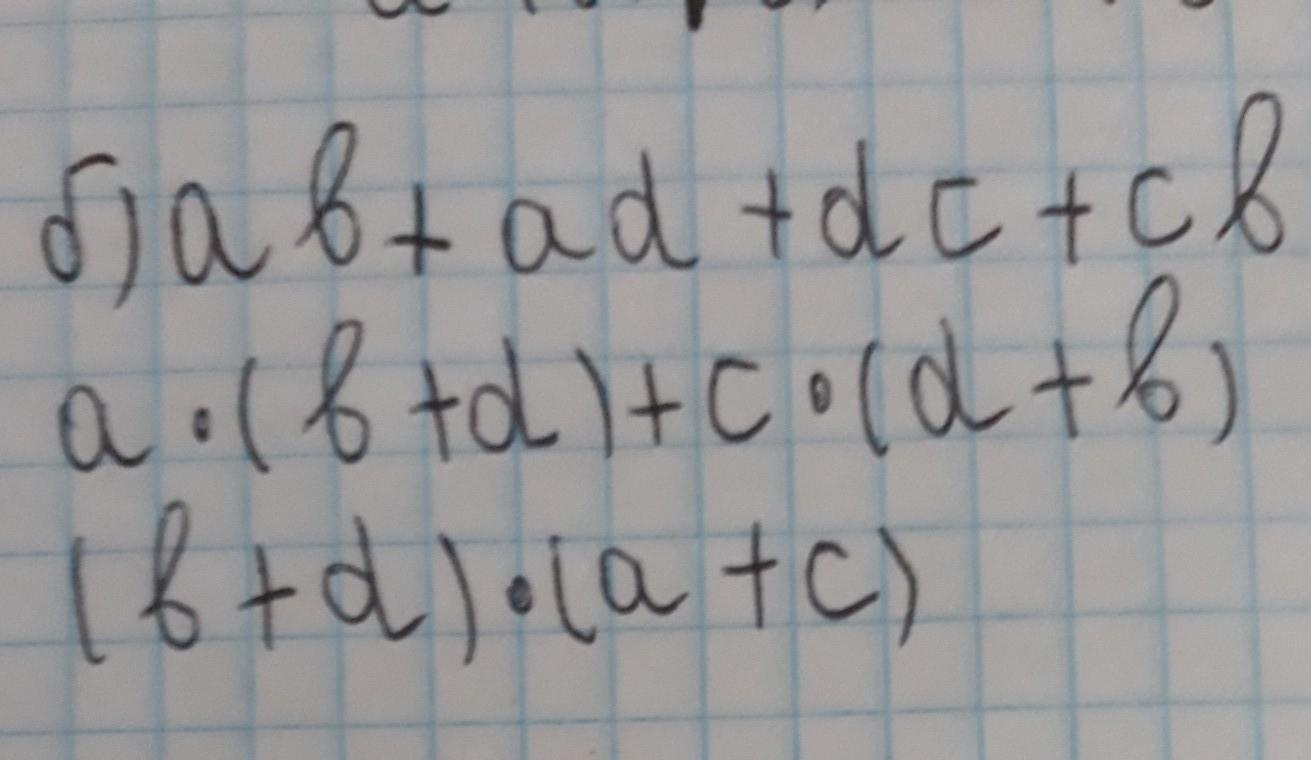 б) ab + ad + dc + cb
a · (b + d) + c · (d + b)
(b + d) · (a + c)